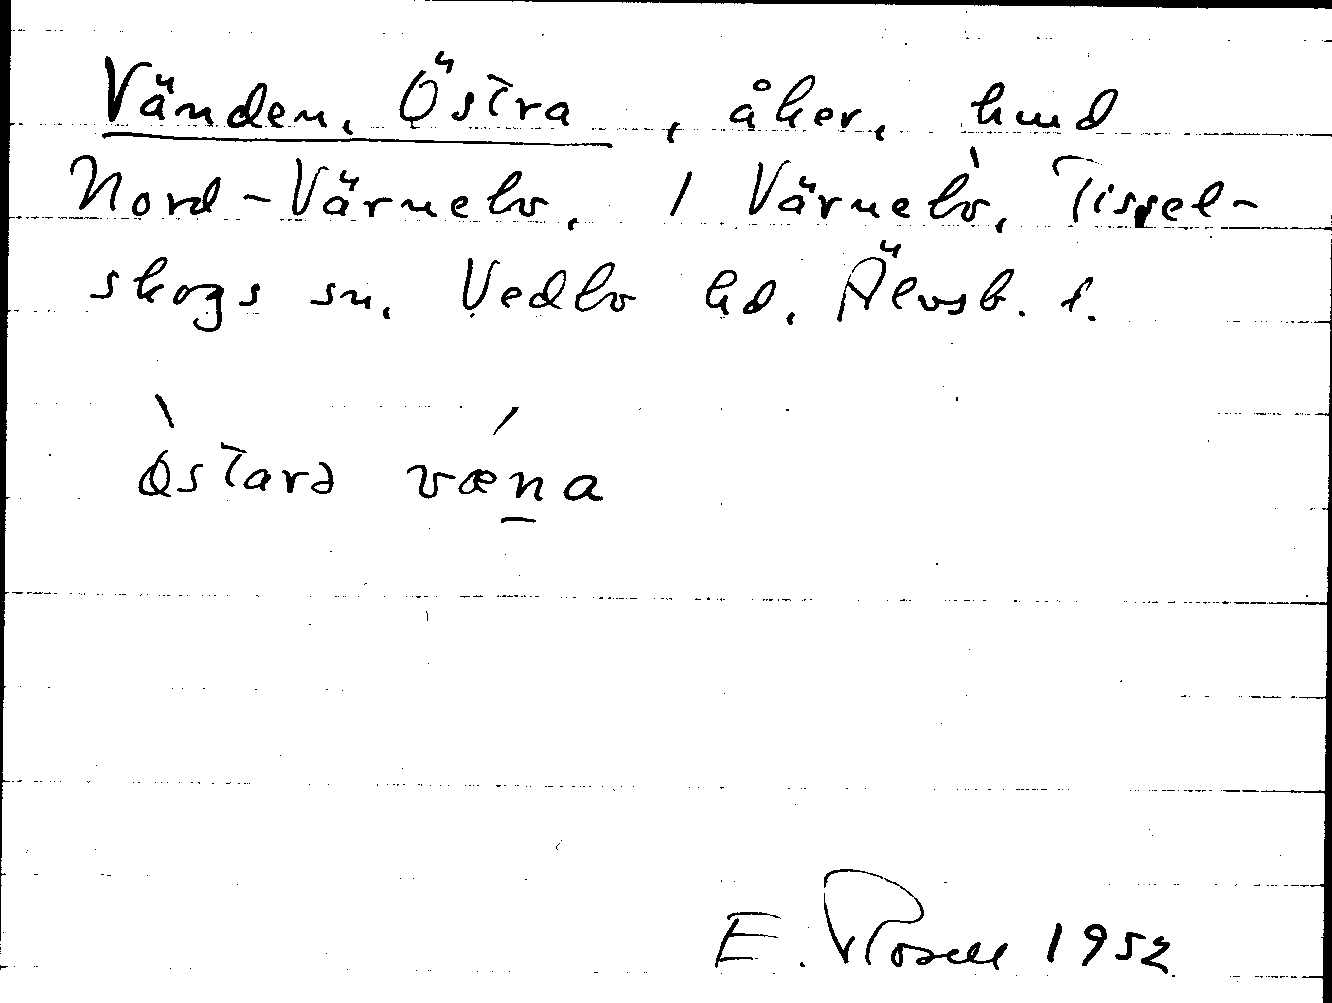 Vänden, Östra, åker, hmd
Nord-Värnebo, 1 Värnebo, Tissel-
skogs sn, Vedbo hd, Älvsb. l.
östarə væna
E. Rosell 1952